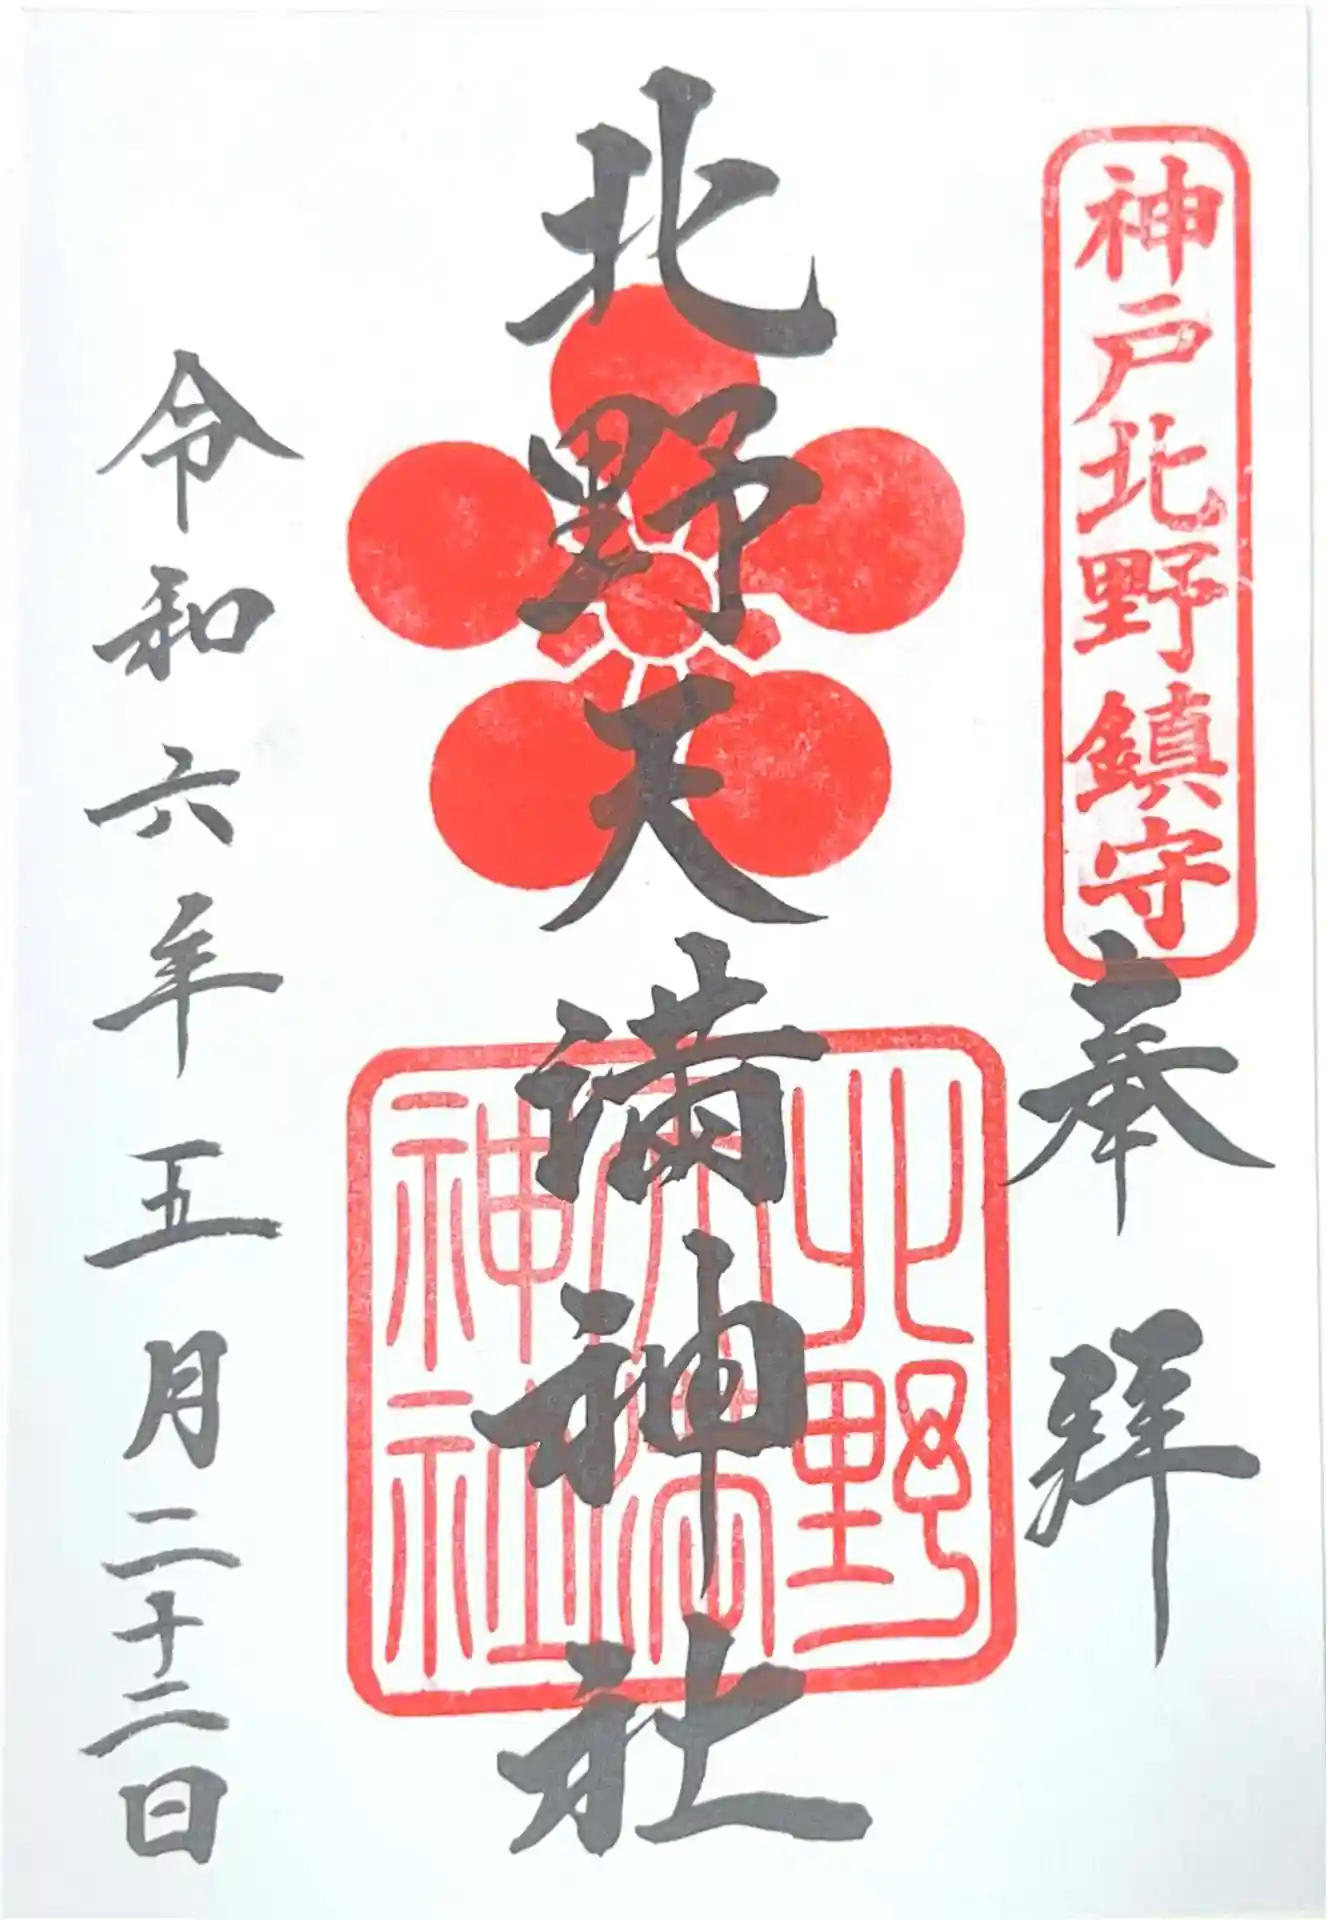 神戸北野鎮守
奉拝
北野天満神社
北野
天満
神社
令和六年五月二十二日